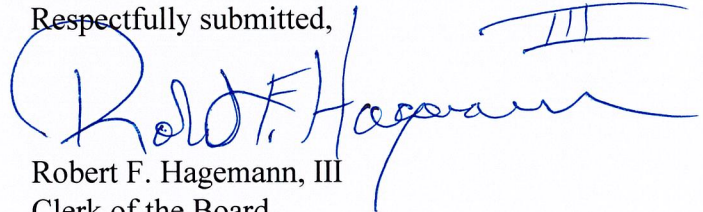 Respectfully submitted,
Robt F. Hagemann III
Robert F. Hagemann, III
Clerk of the Board